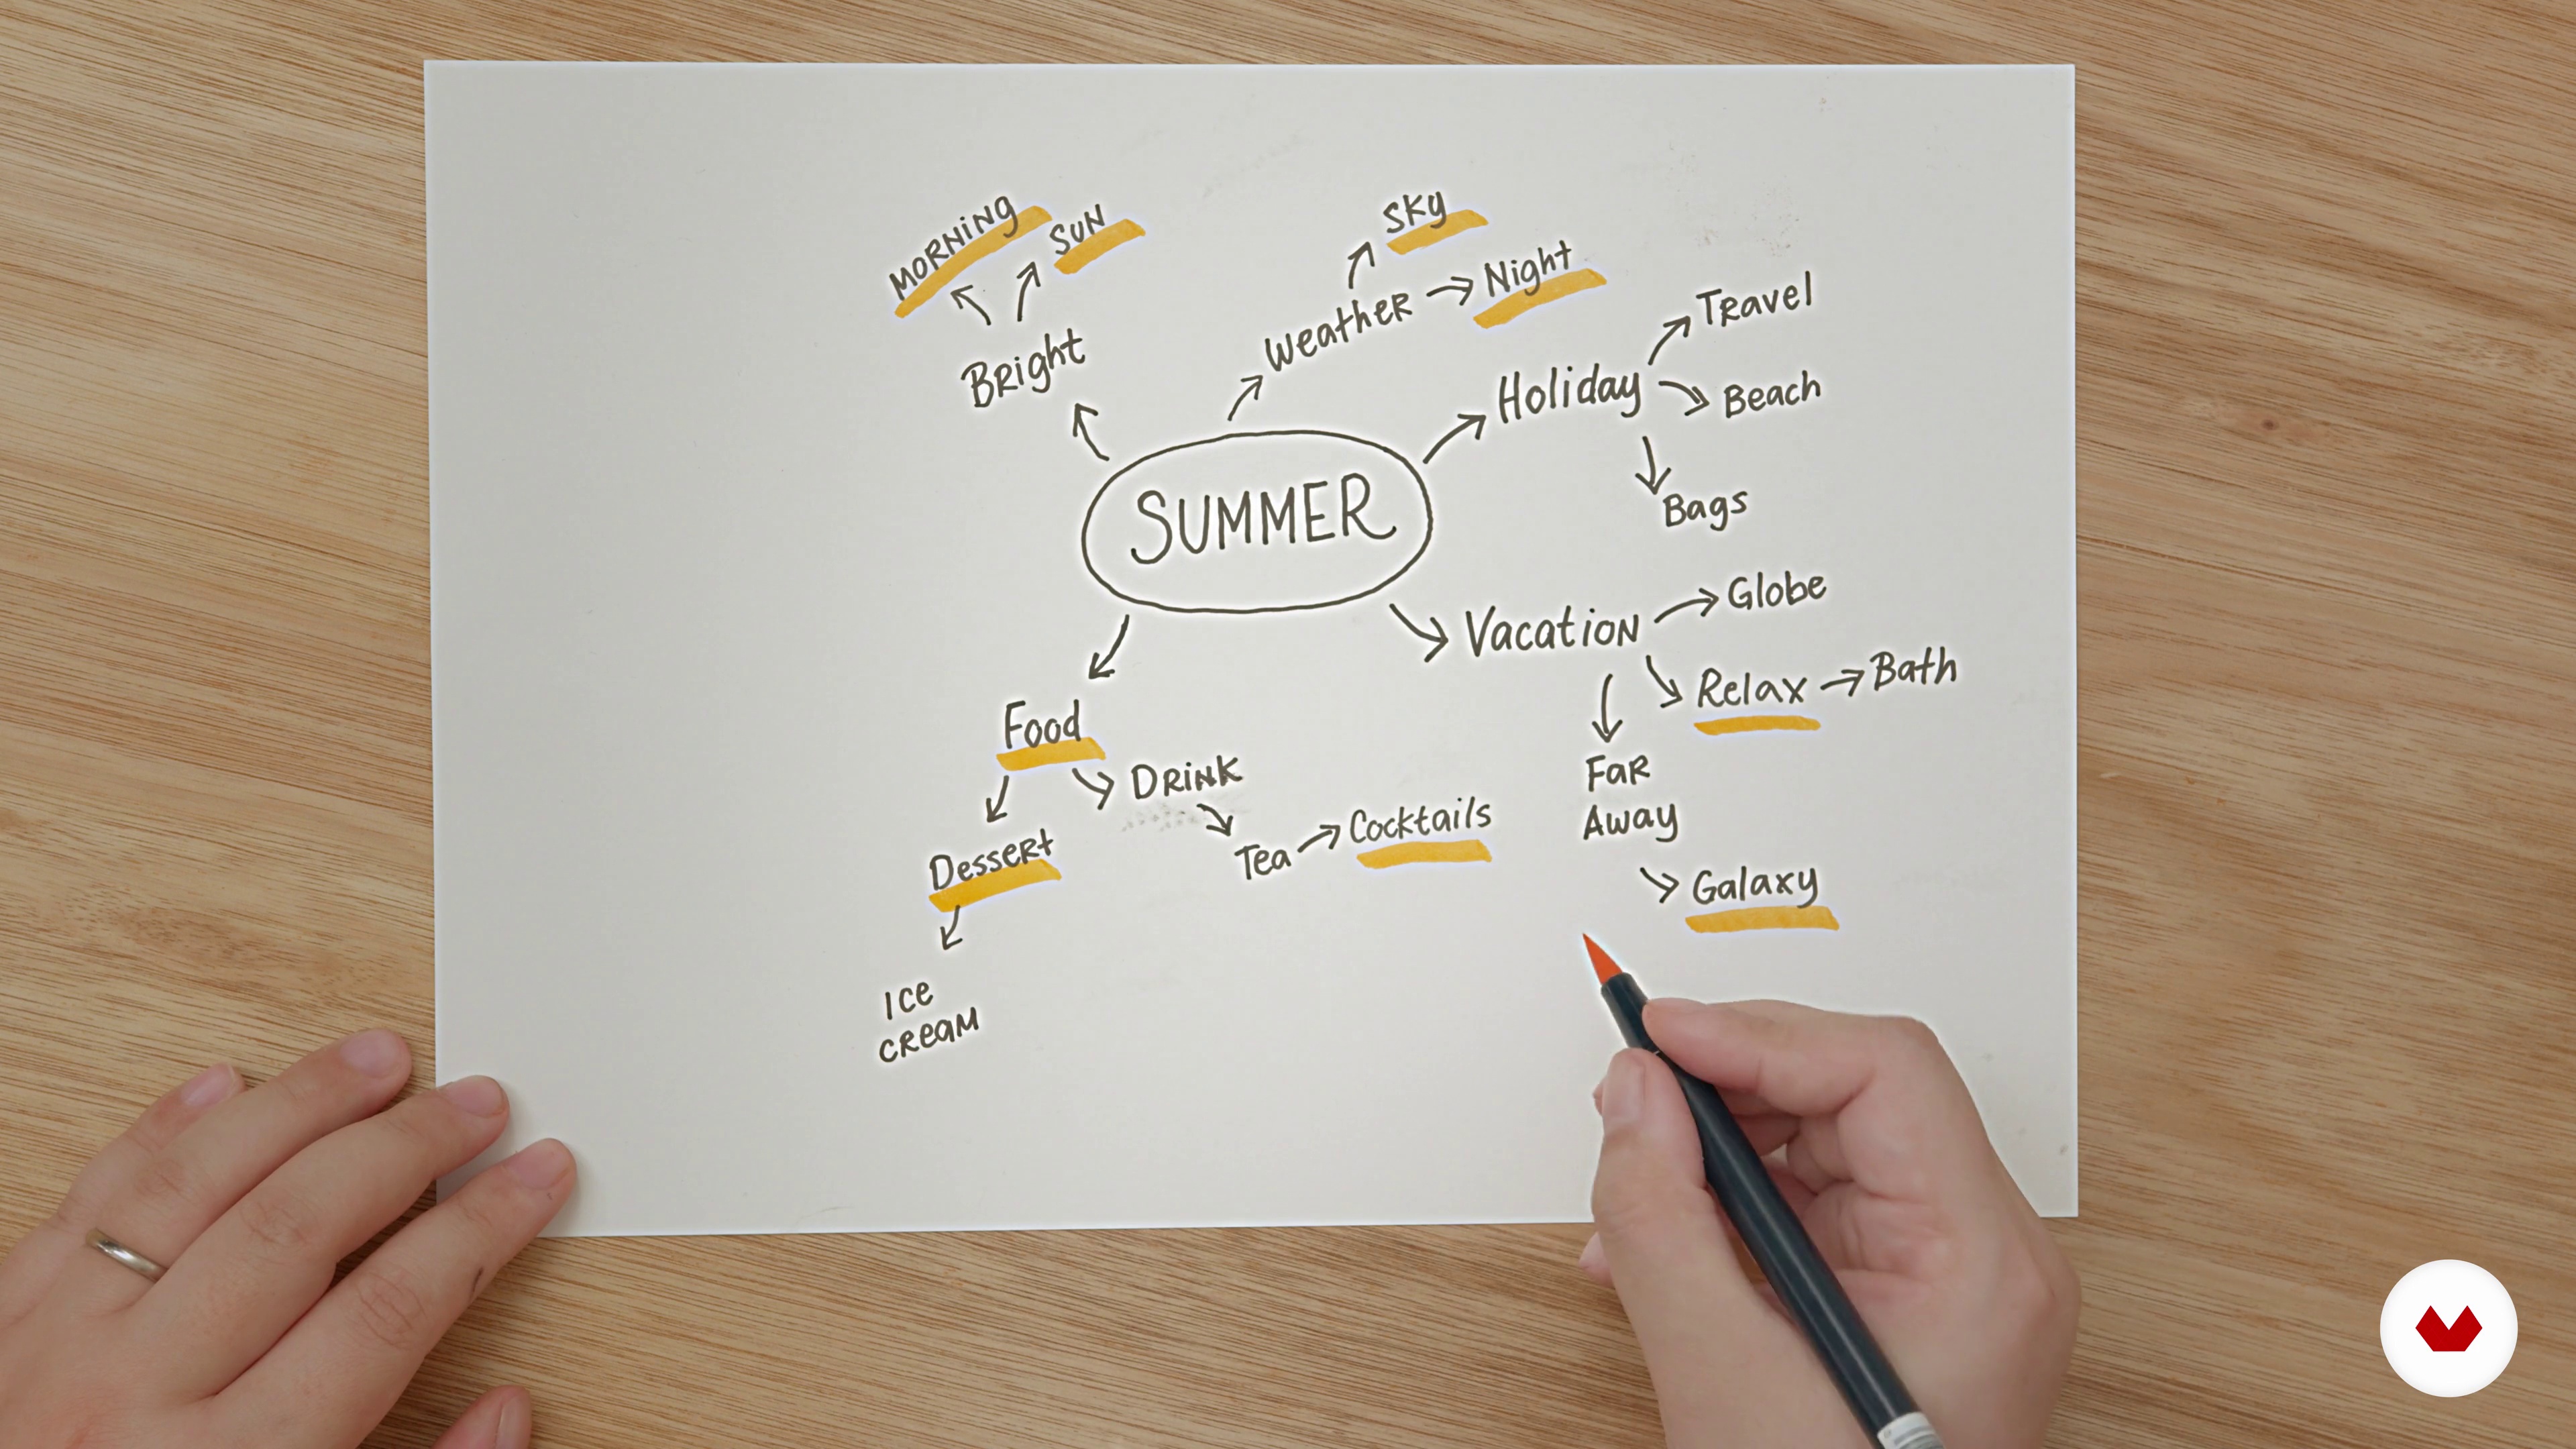 MORNiNg
SUN
Bright
Sky
Night
Weather
Holiday
Travel
Beach
Bags
SUMMER
Vacation
Globe
Relax
Bath
Far
Away
Galaxy
Food
Drink
Tea
Cocktails
Dessert
Ice
cream